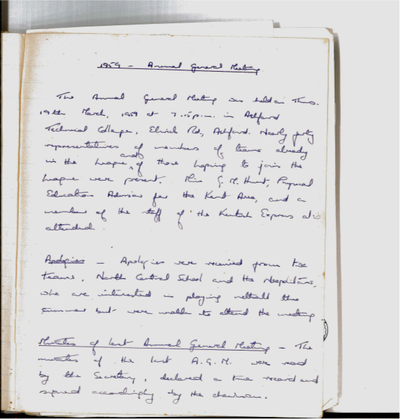 1959 - Annual General Meeting
The Annual General Meeting was held on Thurs.
19th March, 1959 at 7.15 p.m. in Ashford
Technical College, Elwick Rd, Ashford. Nearly forty
representatives of members of teams already
in the League, and of those hoping to join the
League were present. Miss G.M. Hunt, Physical
Education Adviser for the Kent Area, and a
member of the staff of the Kentish Express also
attended.
Apologies - Apologies were received from two
teams, North Central School and the
who are interested in playing netball this
summer but were unable to attend the meeting
Minutes of last Annual General Meeting - The
minutes of the last A.G.M. were read
by the Secretary, declared a true record and
signed accordingly by the chairman.